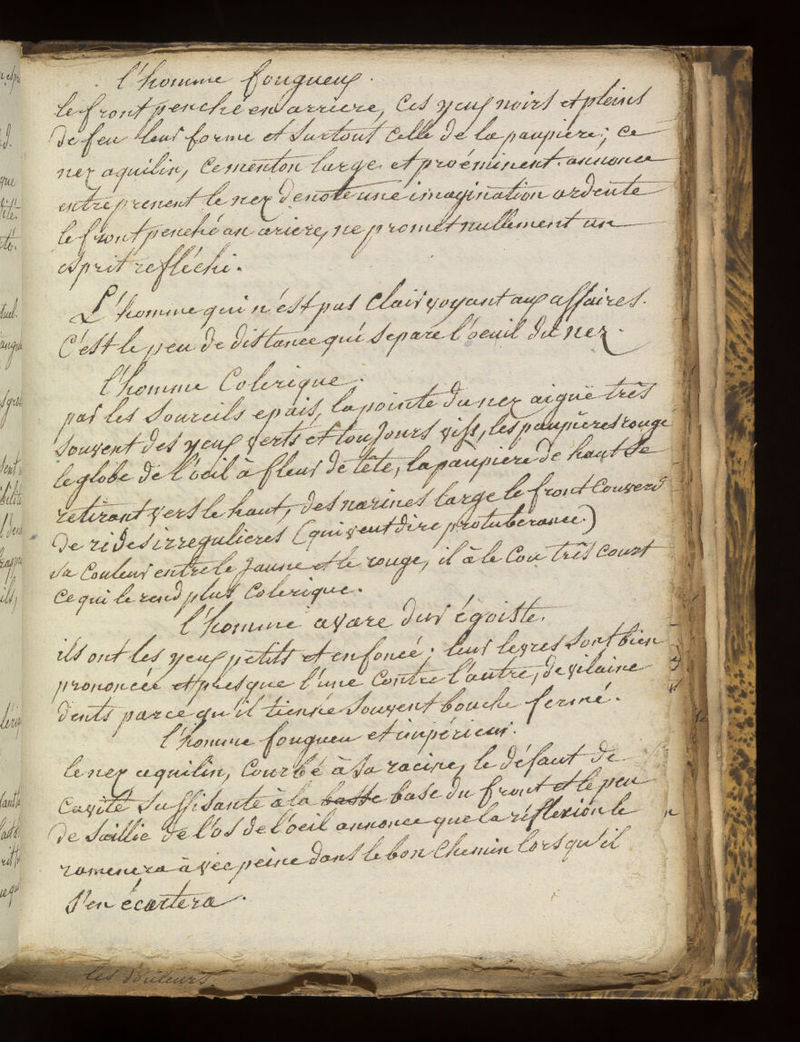 l'homme fougueux.
le front penché en arriere, ces yeux noirs et pleins
de feu leur forme et surtout celle de la paupière; ce
nez aquilin, ce menton large et proéminent annonce
entreprenent le nez denote une imagination ardente
le front penché an ariere, ne promet nullement un
esprit refléchi.
L'homme qui n'est pas clairvoyant aux affaires.
C'est le peu de distance qui separe l'oeuil du nez.
l'homme Colerique.
par les Sourcils epais, la pointe du nez aiguë très
souvent des yeux verts et toujours vifs, les paupières rouge
le globe de l'oeil à fleur de tête, la paupiere de haut se
retirant vers le haut, des narines large le front Couvert
de rides irregulieres (qui veut dire protuberance.)
sa Couleur entre le jaune et le rouge, il à le Cou très court
ce qui le rend plus Colerique.
l'homme avare dur égoiste.
ils ont les yeux petits et enfoncé; leur levres sont bien
prononcée et presque l'une Contre l'autre, de vilaine
dents parce qu'il tienne souvent bouche fermé.
l'homme fougueu et impérieux.
le nez aquilin, Courbé à sa racine, le défaut de
Cavité suffisante à la basse base du front et le peu
de saillie de l'os de l'oeil annonce que la réflexion le
ramenera àvec peine dans le bon Chemin lorsqu'il
s'en écartera.
les